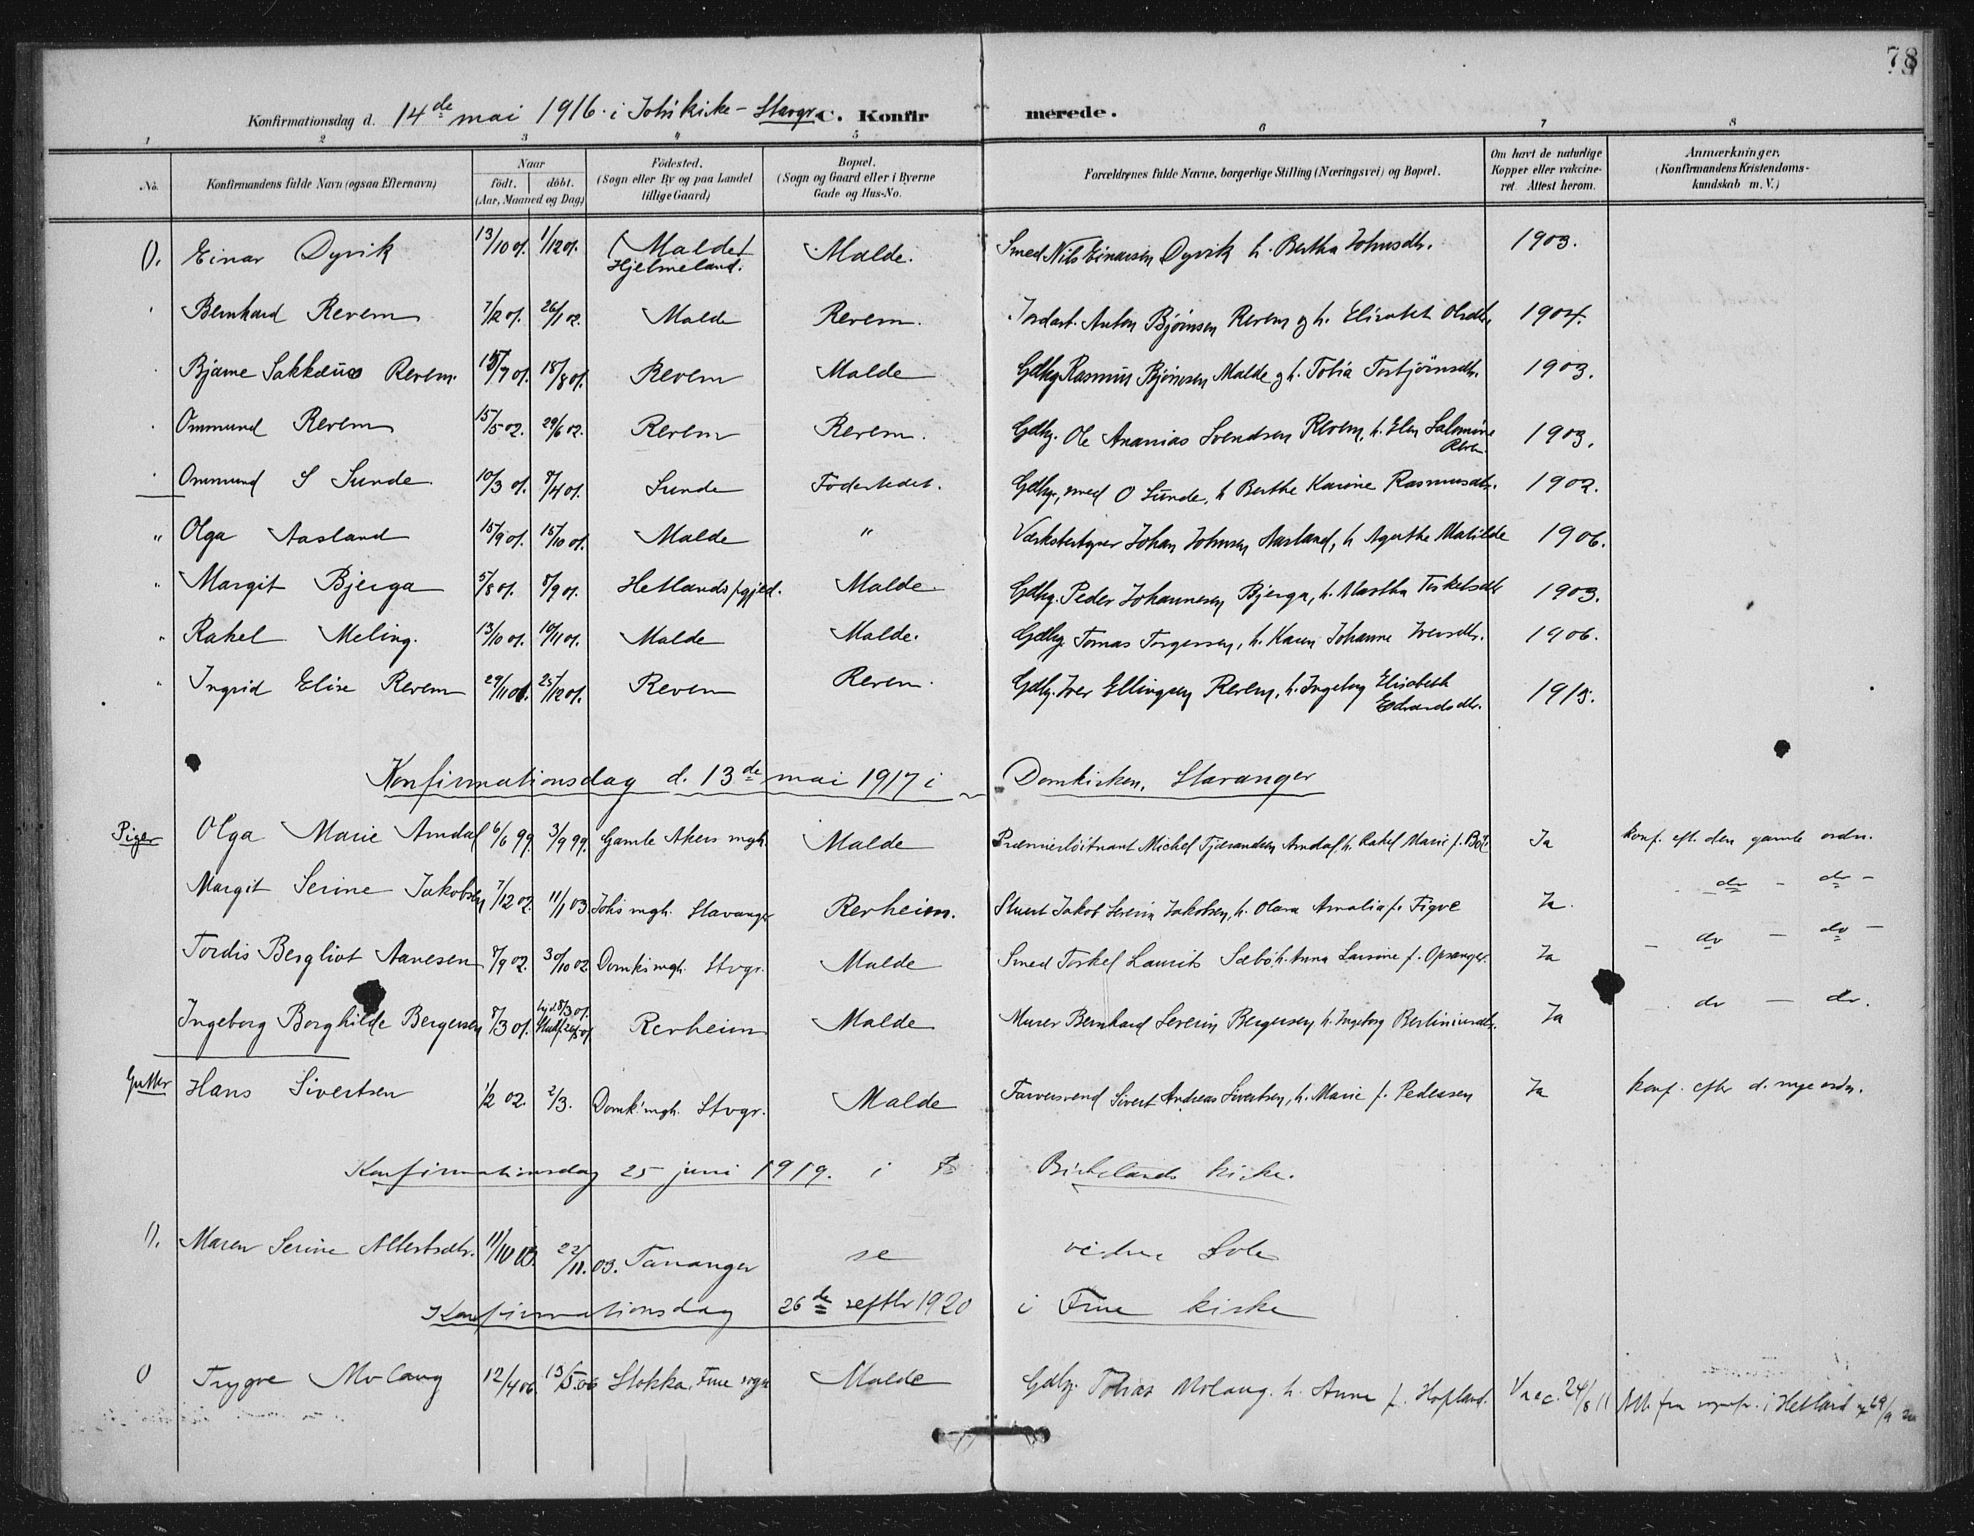 78
Konfirmationsdag d. 14de mai 1916. i Johs kirke - Stavgr. C. Konfirmerede.
1 2 3 4 5 6 7 8
No. Konfirmandens fulde Navn (ogsaa Efternavn) Naar födt. döbt. (Aar, Maaned og Dag) Födested. (Sogn eller By og paa Landet tillige Gaard) Bopæl. (Sogn og Gaard eller i Byerne Gade og Hus-No. Forældrenes fulde Navne, borgerlige Stilling (Næringsvei) og Bopæl. Om havt de naturlige Kopper eller vakcineret Attest herom. Anmærkninger. (Konfirmandens Kristendomskundskab m. V.)
0. Einar Dyvik 13/10 01. 1/12 01. (Malde) Hjelmeland. Malde. Smed Nils Einarsen Dyvik h. Bertha Johnsdtr. 1903.
Bernhard Revem 7/12 01. 26/1 02. Malde Revem. Jordarb. Anton Bjørnsen Revem og h. Elisabet Olsdtr. 1904.
Bjarne Sakkæus Revem. 15/7 01. 18/8 01. Revem Malde Gdbg Rasmus Bjørnsen Malde og h. Tobia Torbjørnsdtr. 1903.
Ommund Revem 15/5 02. 29/6 02. Revem Revem. Gdbg. Ole Ananias Svendsen Revem, h. Elen Salomine Revem 1903.
Ommund S Sunde. 10/3 01. 8/4 01. Sunde Fødestedet. Gdbg, smed O Sunde, h Berthe Karine Rasmusdtr. 1902.
" Olga Aasland 15/9 01. 15/10 01. Malde " Værksbestyrer Johan Johnsen Aasland, h Agathe Matilde 1906.
" Margit Bjerga 5/8 01. 8/9 01. Hetlands prgjæld. Malde Gdbg. Peder Johannesen Bjerga, h. Martha Torkelsdtr 1903.
" Rakel Meling. 13/10 01. 10/11 01. Malde Malde. Gdbg. Tomas Torgersen, h. Karen Johanne Iversdtr. 1906.
" Ingrid Elise Revem 29/11 01. 25/12 01. Revem Revem. Gdbg. Iver Ellingsen Revem, h. Ingeborg Elisabeth Edvardsdtr. 1913.
Konfirmationsdag d. 13de mai 1917 i Domkirken, Stavanger
Piger Olga Marie Amdal 6/6 99. 3/9 99. Gamle Akers mgh. Malde Premierløitnant Michel Tjerandsen Amdal, h. Rakel Marie f. Bøe Ja konf. eft. den gamle ordn.
Margit Serine Jakobsen 7/12 02. 11/1 03. Johs mgh. Stavanger Revheim. Stuert Jakob Severin Jakobsen, h. Olava Amalia f. Figve Ja. - do - do -
Tordis Bergliot Aanesen 8/9 02. 30/10 02 Domk's mgh. Stvgr. Malde Smed Torkel Laurits Sæbø, h. Anna Lavine f. Opsanger. Ja - do - do -
Ingeborg Borghilde Bergersen 8/3 01. hjd. 8/3 01. Revheim Malde Murer Bernhard Severin Bergersen, h. Ingeborg Bertiniusdtr. Ja do - do.
Gutter Hans Sivertsen 1/2 02. 2/3. Domk's mgh. Stvgr. Malde Farversvend Sivert Andreas Sivertsen, h. Marie f. Pedersen Ja konf. efter d. nye ordn.
Konfirmationsdag 25 juni 1919. i B Birkelands kirke.
0. Maren Serine Albertsdtr. 11/10 03. 22/11. 03. Tananger se vidre Sole
Konfirmationsdag 26de septbr 1920 i Frue kirke
0 Trygve Molaug 12/4 06. 13/5. 06 Stokka, Frue sogn Malde Gdbg. Tobias Molaug. h. Anne f. Hopland. Vacc. 24/8 11 Att. fra sognepr. i Hetland